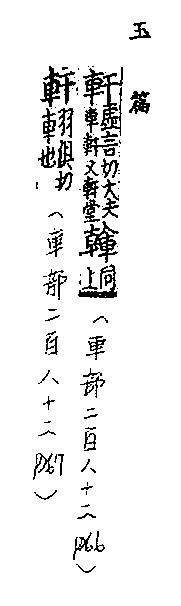 玉篇
軒虛言切大夫車軒又軒堂 同上(車部二百八十二 p66)
羽俱切車也(車部二百八十二 p67)